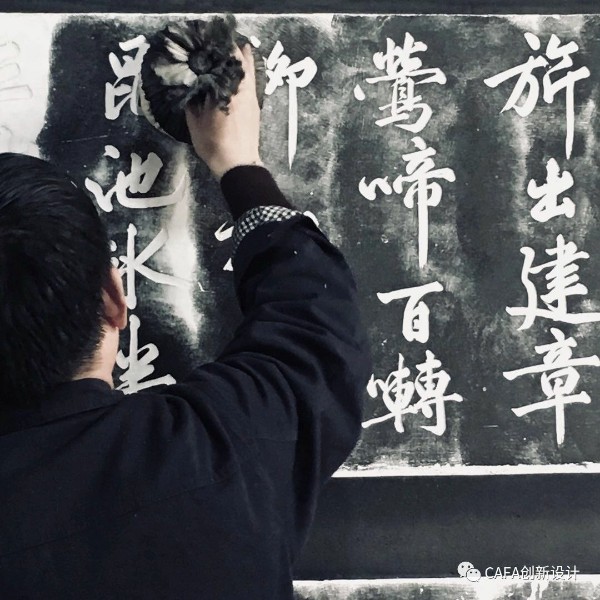 旂出建章
鶯啼百囀
御
昆池冰
CAFA创新设计